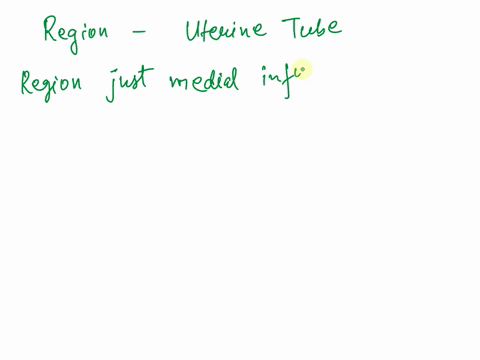 Region - Uterine Tube
Region just medial inf